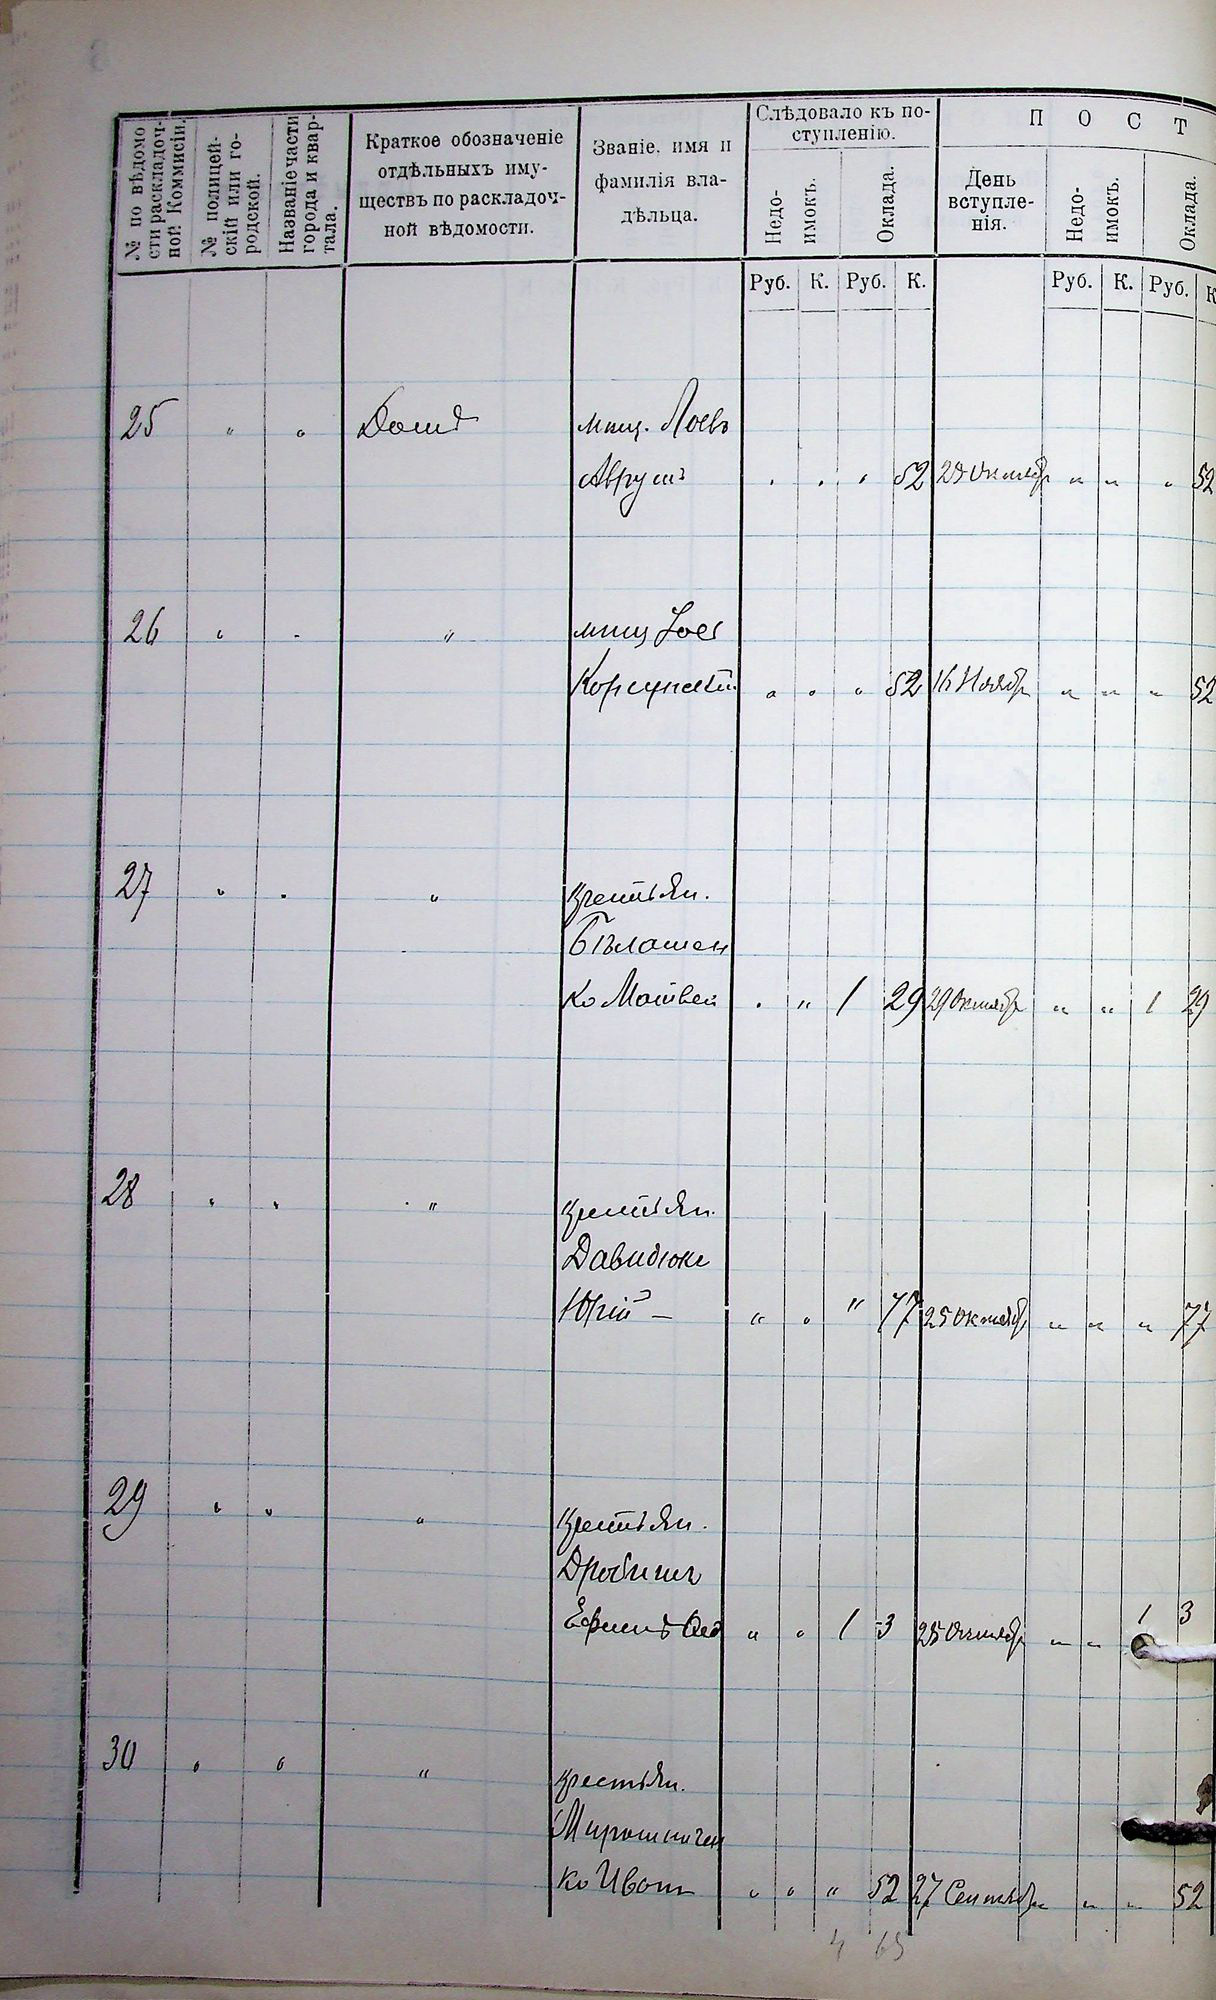 № по вѣдомо
сти раскладоч-
ной Коммисіи.
№ полицей-
скій или го-
родской.
Названіе части
города и квар-
тала.
Краткое обозначеніе
отдѣльныхъ иму-
ществъ по раскладоч-
ной вѣдомости.
Званіе, имя и
фамилія вла-
дѣльца.
Слѣдовало къ по-
ступленію.
Недо-
имокъ.
Оклада.
День
вступле-
нія.
П О С Т
Недо-
имокъ.
Оклада.
Руб. К. Руб. К. Руб. К. Руб. К
25 " " Домъ мѣщ.
" " " 52 Октябр " " " 52
26 " " " мѣщ
" " " 52 16 Ноябр " " " 52
27 " " " крестьян.
Бѣлашен
ко Матвей " " 1 29 29 Октябр " " 1 29
28 " " " крестьян.
Давидюк
Юрій — " " " 77 25 Октябр " " " 77
29 " " " крестьян.
Ефимъ " " 1 3 25 Октябр " " 1 3
30 " " " крестьян.
Мирошничен
ко Иван " " " 52 27 Сентябр " " " 52
4 65